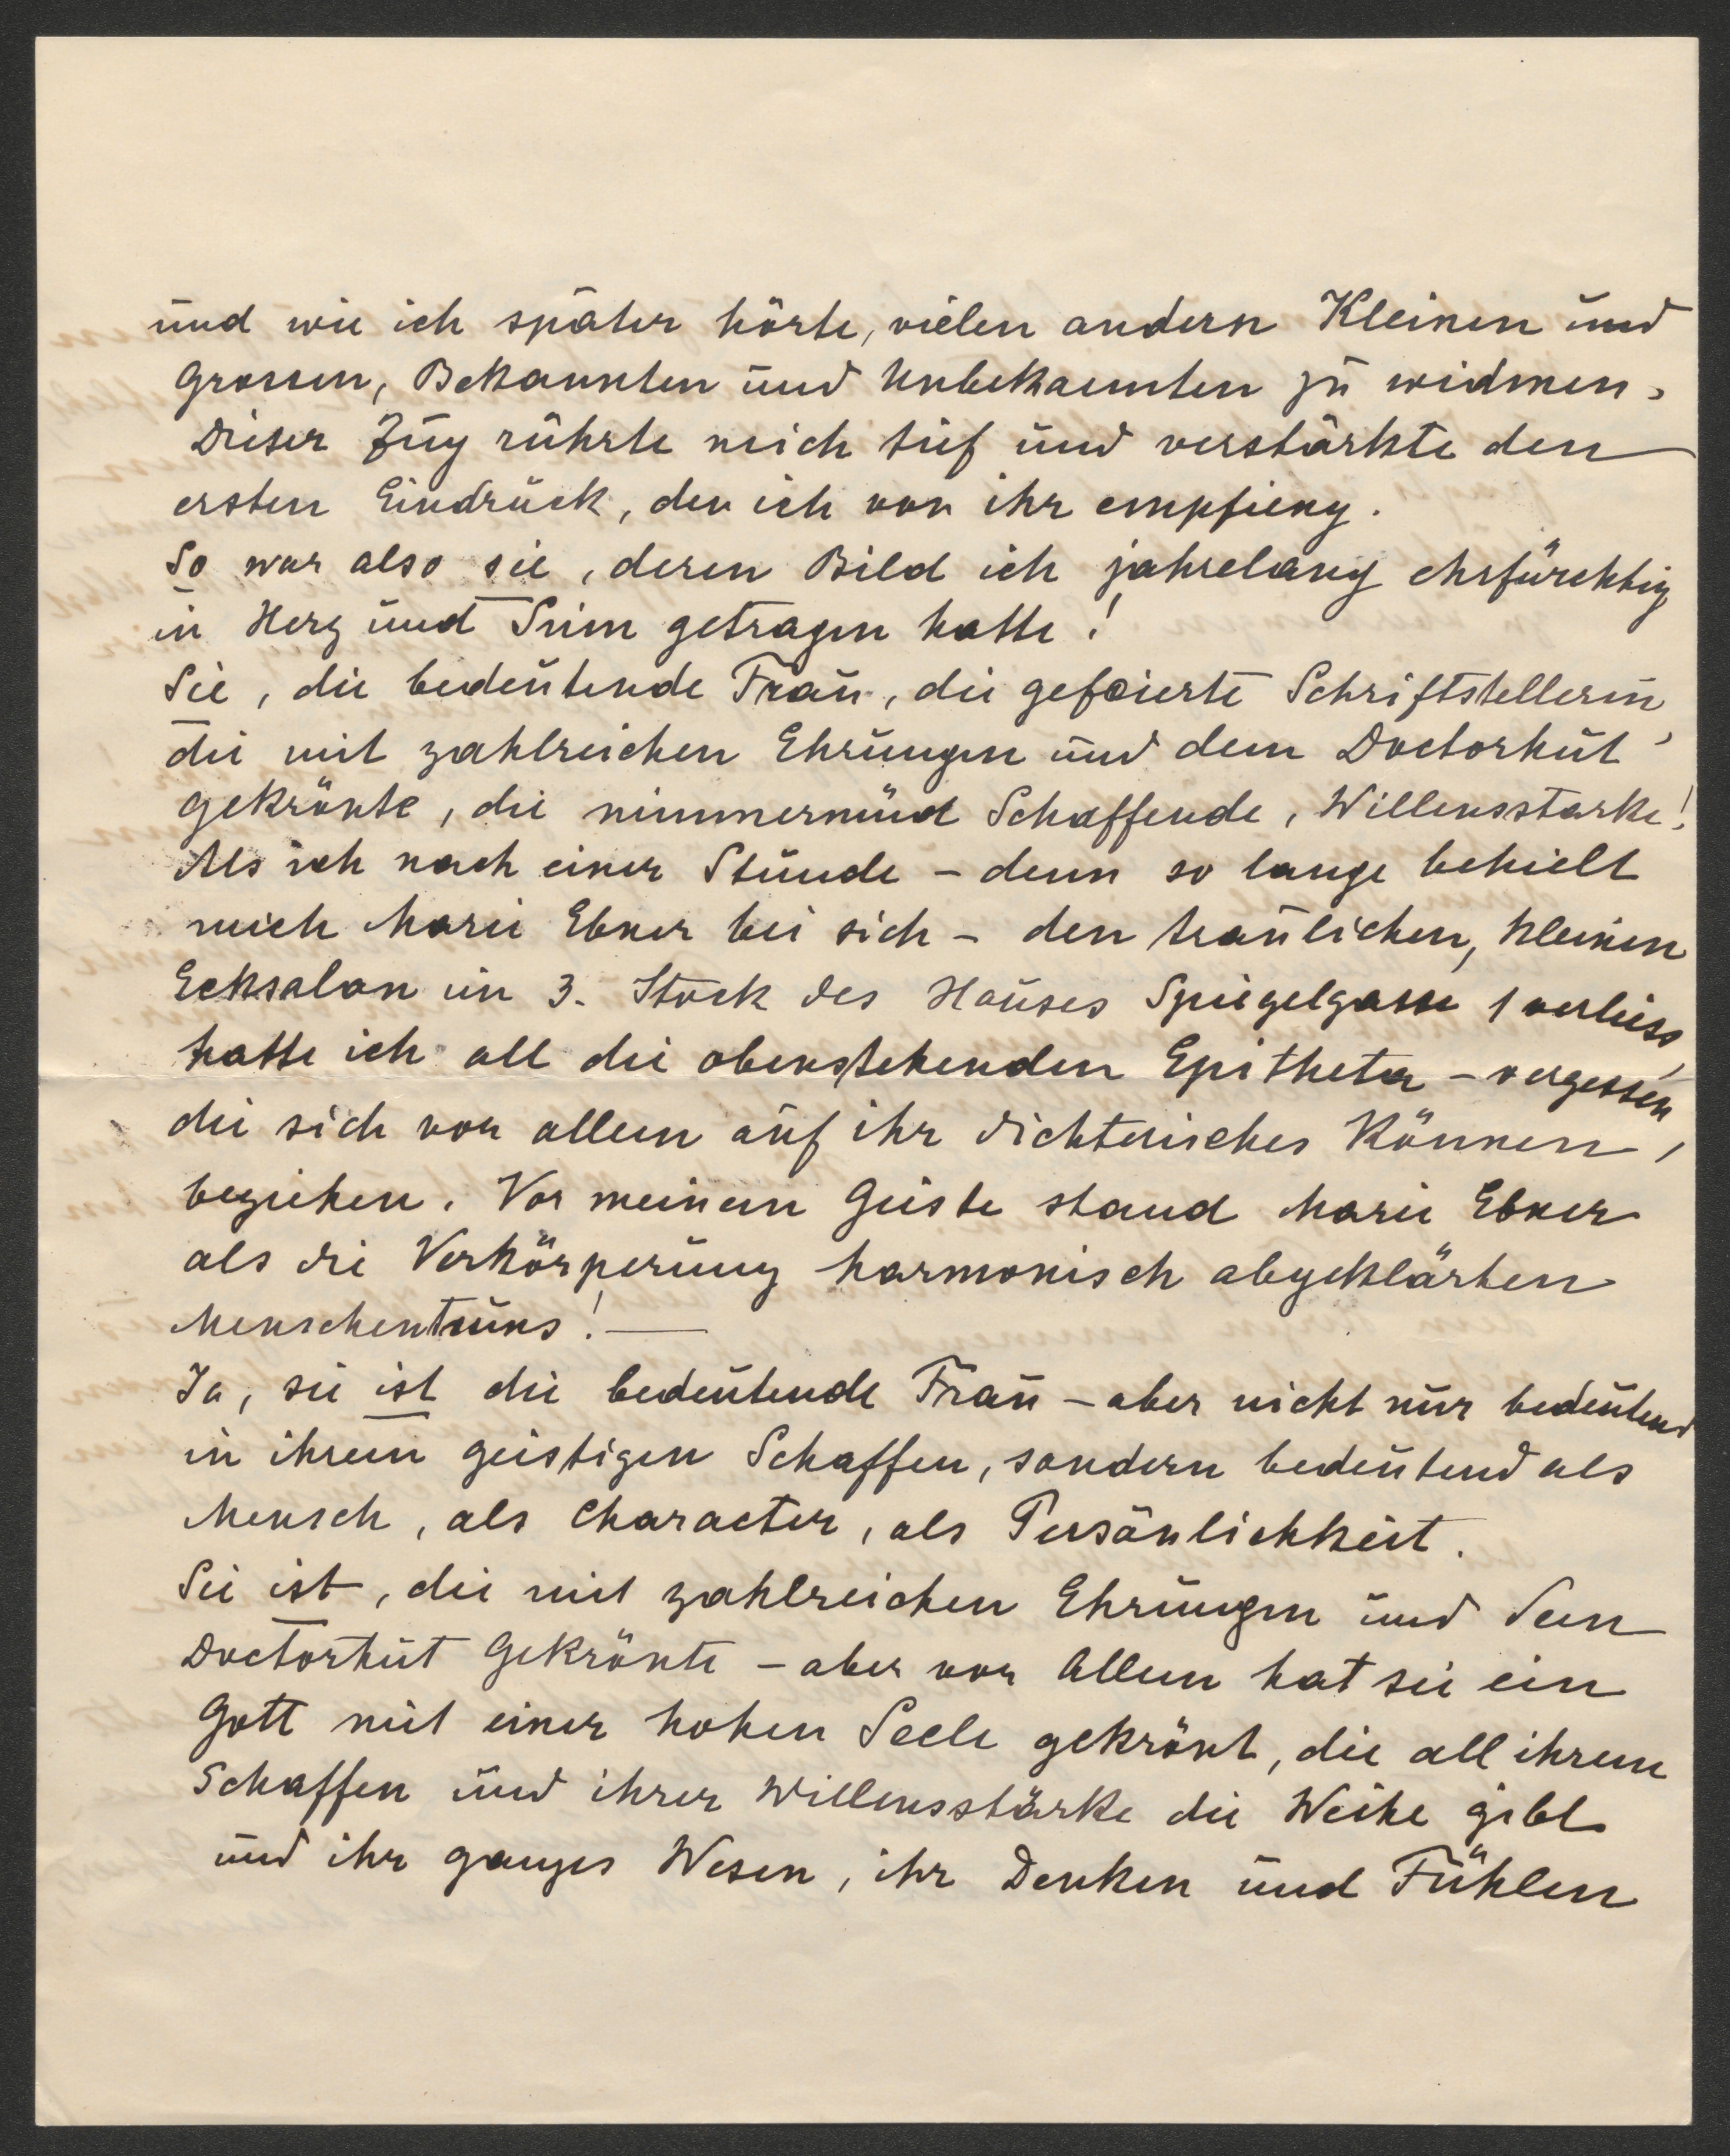 und wie ich später hörte, vielen andern Kleinen und
Grossen, Bekannten und Unbekannten zu widmen.
Dieser Zug rührte mich tief und verstärkte den
ersten Eindruck, den ich von ihr empfieng.
So war also sie, deren Bild ich jahrelang ehrfürchtig
in Herz und Sinn getragen hatte!
Sie, die bedeutende Frau, die gefeierte Schriftstellerin,
die mit zahlreichen Ehrungen und dem Doctorhut
gekrönte, die nimmermüd Schaffende, Willensstarke!
Als ich nach einer Stunde – denn so lange behielt
mich Marie Ebner bei sich – den traulichen, kleinen
Ecksalon im 3. Stock des Hauses Spiegelgasse 1 verliess,
hatte ich all die obenstehenden Epitheta – vergessen,
die sich vor allem auf ihr dichterisches Können,
beziehen. Vor meinem Geiste stand Marie Ebner
als die Verkörperung harmonisch abgeklärten
Menschentums! —
Ja, sie ist die bedeutende Frau – aber nicht nur bedeutend
in ihrem geistigen Schaffen, sondern bedeutend als
Mensch, als Character, als Persönlichkeit.
Sie ist, die mit zahlreichen Ehrungen und dem
Doctorhut Gekrönte – aber vor Allem hat sie ein
Gott mit einer hohen Seele gekrönt, die all ihrem
Schaffen und ihrer Willensstärke die Weihe gibt
und ihr ganzes Wesen, ihr Denken und Fühlen